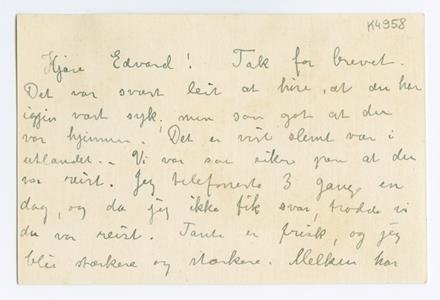 K4958
Kjære Edvard! Tak for brevet.
Det var svært leit at høre, at du har
igjen vært syk, men saa got at du
var hjemme. Det er vist slemt vær i
utlandet. – Vi var saa sikre paa at du
var reist. Jeg telefonerte 3 gang en
dag, og da jeg ikke fik svar, trodde vi
du var reist. Tante er frisk, og jeg
blir stærkere og stærkere. Melken har